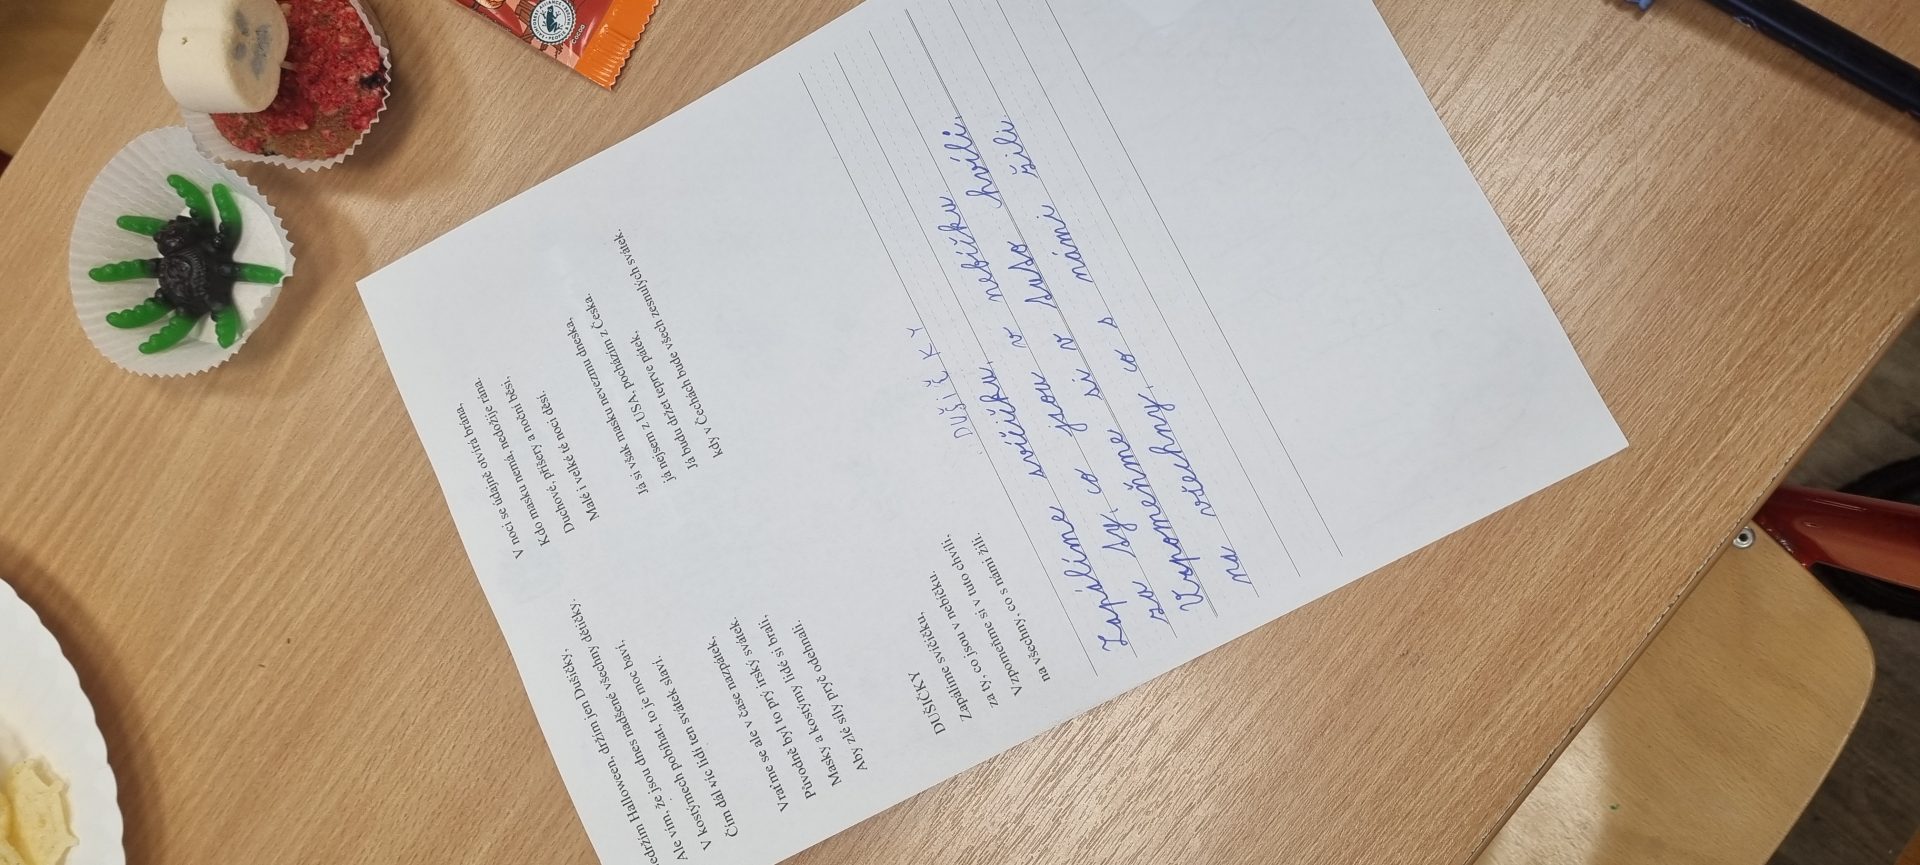 edržím Halloween, držím jen Dušičky,
Ale vím, že jsou dnes nadšené všechny dětičky.
V kostýmech pobíhat, to je moc baví,
Čím dál víc lidí ten svátek slaví.
Vraťme se ale v čase nazpátek,
Původně byl to prý irský svátek.
Masky a kostýmy lidé si brali,
Aby zlé síly pryč odehnali.
V noci se údajně otvírá brána,
Kdo masku nemá, nedožije rána.
Duchové, příšery a noční běsi,
Malé i velké té noci děsí.
Já si však masku nevezmu dneska,
já nejsem z USA, pocházím z Česka.
Já budu držet teprve pátek,
kdy v Čechách bude všech zesnulých svátek.
DUŠIČKY
Zapálíme svíčičku,
za ty, co jsou v nebíčku.
Vzpomeňme si v tuto chvíli,
na všechny, co s námi žili.
DUŠIČKY
Zapálíme svíčičku,
za ty, co jsou v nebíčku
Vzpomeňme si v tuto hvíli,
na všechny, co s námi žili